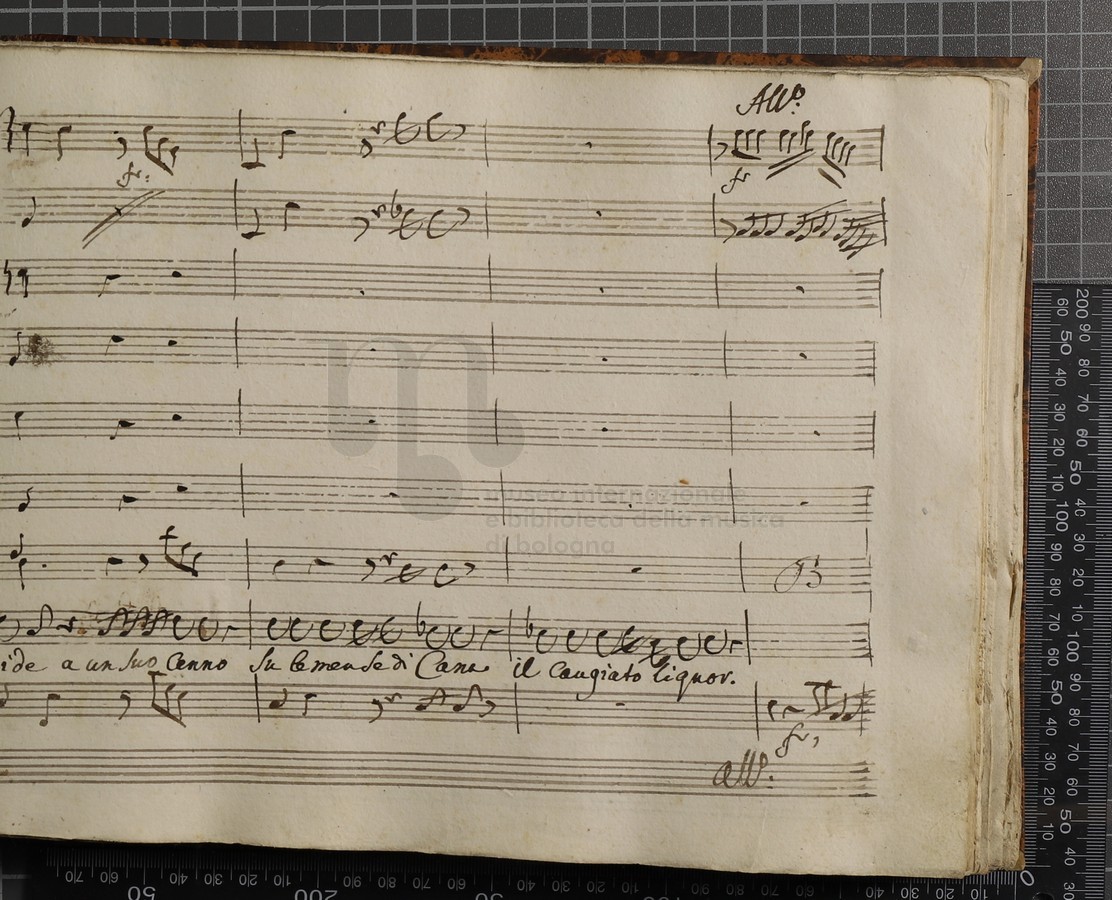 All:o
fr:
fr
B
ide a un suo Cenno Su le mense di Cana il cangiato liquor.
fr,
all:o
museo internazionale
e biblioteca della musica
di bologna